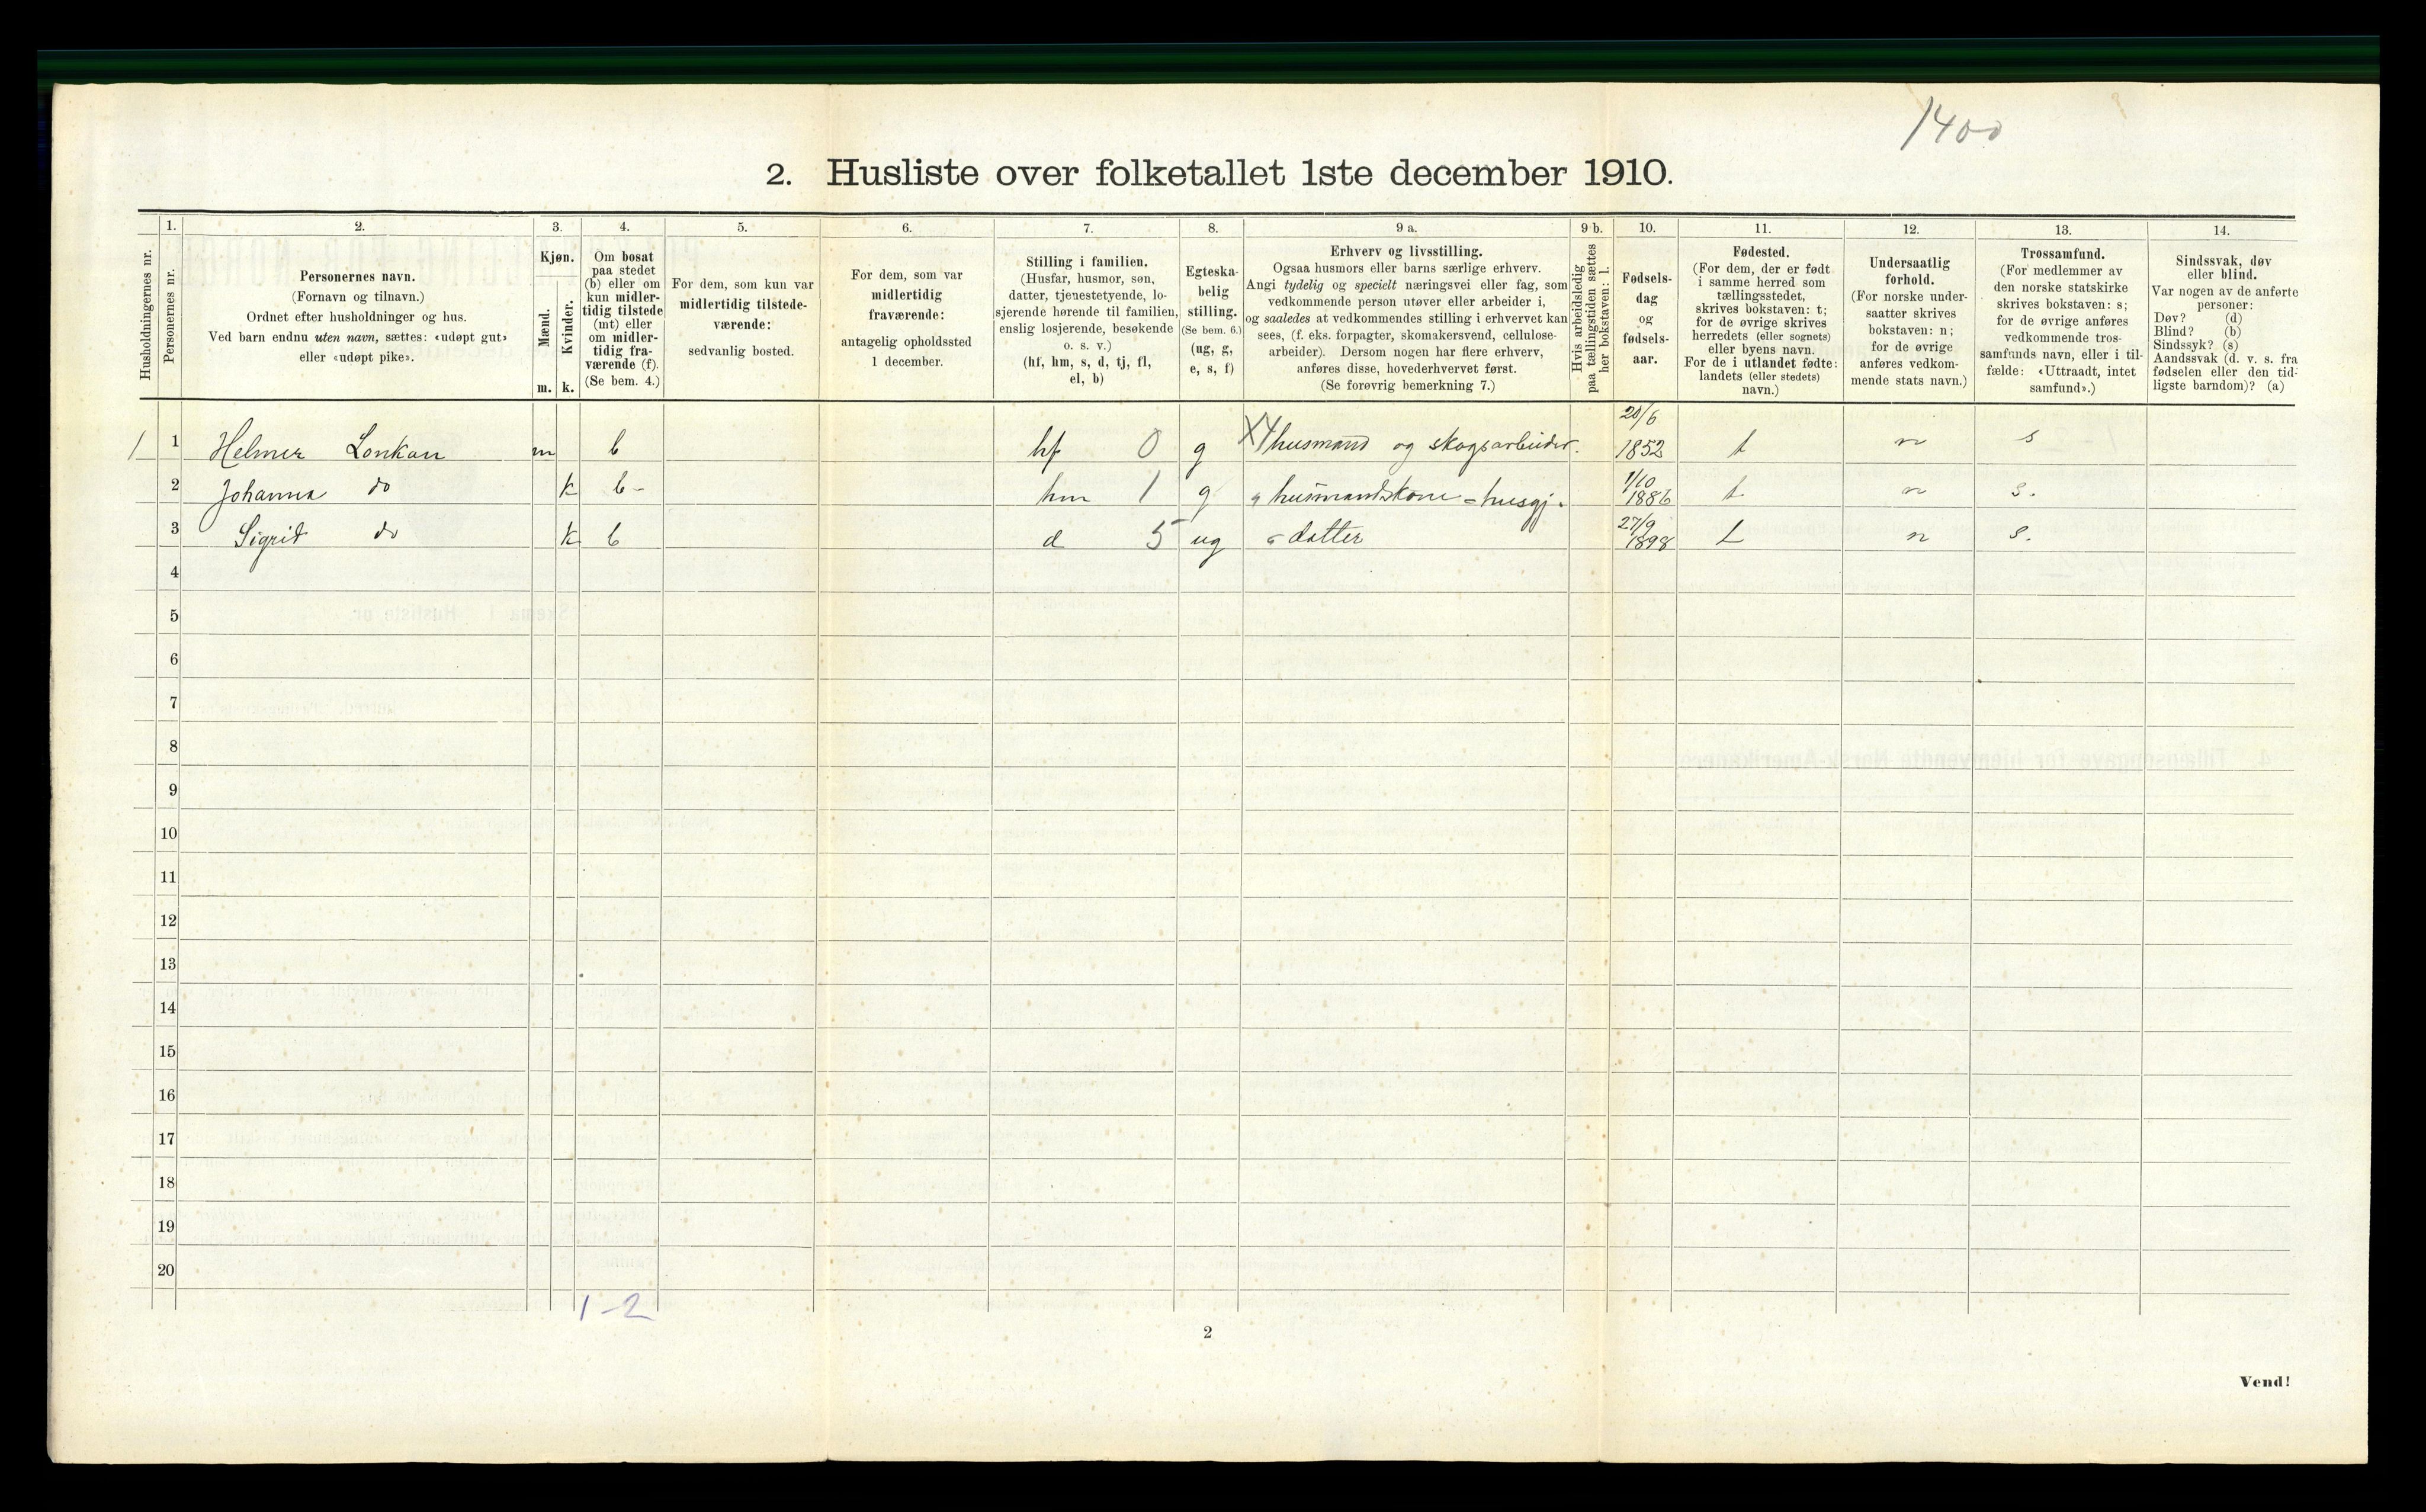 1400
2. Husliste over folketallet 1ste december 1910.
1. 2. 3. 4. 5. 6. 7. 8. 9 a. 9 b. 10. 11. 12. 13. 14.
Husholdningernes nr.
Personernes nr.
Personernes navn.
(Fornavn og tilnavn.)
Ordnet efter husholdninger og hus.
Ved barn endnu uten navn, sættes: «udøpt gut»
eller «udøpt pike».
Kjøn.
Mænd.
Kvinder.
m. k.
Om bosat
paa stedet
(b) eller om
kun midler-
tidig tilstede
(mt) eller
om midler-
tidig fra-
værende (f).
(Se bem. 4.)
For dem, som kun var
midlertidig tilstede-
værende:
sedvanlig bosted.
For dem, som var
midlertidig
fraværende:
antagelig opholdssted
1 december.
Stilling i familien.
(Husfar, husmor, søn,
datter, tjenestetyende, lo-
sjerende hørende til familien,
enslig losjerende, besøkende
o. s. v.)
(hf, hm, s, d, tj, fl,
el, b)
Egteska-
belig
stilling.
(Se bem. 6.)
(ug, g,
e, s, f)
Erhverv og livsstilling.
Ogsaa husmors eller barns særlige erhverv.
Angi tydelig og specielt næringsvei eller fag, som
vedkommende person utøver eller arbeider i,
og saaledes at vedkommendes stilling i erhvervet kan
sees, (f. eks. forpagter, skomakersvend, cellulose-
arbeider). Dersom nogen har flere erhverv,
anføres disse, hovederhvervet først.
(Se forøvrig bemerkning 7.)
Hvis arbeidsledig
paa tællingstiden sættes
her bokstaven: l.
Fødsels-
dag
og
fødsels-
aar.
Fødested.
(For dem, der er født
i samme herred som
tællingsstedet,
skrives bokstaven: t;
for de øvrige skrives
herredets (eller sognets)
eller byens navn.
For de i utlandet fødte:
landets (eller stedets)
navn.)
Undersaatlig
forhold.
(For norske under-
saatter skrives
bokstaven: n;
for de øvrige
anføres vedkom-
mende stats navn.)
Trossamfund.
(For medlemmer av
den norske statskirke
skrives bokstaven: s;
for de øvrige anføres
vedkommende tros-
samfunds navn, eller i til-
fælde: «Uttraadt, intet
samfund».)
Sindssvak, døv
eller blind.
Var nogen av de anførte
personer:
Døv? (d)
Blind? (b)
Sindssyk? (s)
Aandssvak (d. v. s. fra
fødselen eller den tid-
ligste barndom)? (a)
1 1 Helmer Lonkan m b hf 0 g husmand og skogsarbeider. 20/6 1852 t n s
2 Johanna do k b - hm 1 g husmandskone = husgj. 1/10 1886 t n s.
3 Sigrid do k b d 5 ug datter 27/9 1898 t n s.
4
5
6
7
8
9
10
11
12
13
14
15
16
17
18
19
20
1-2
2
Vend!